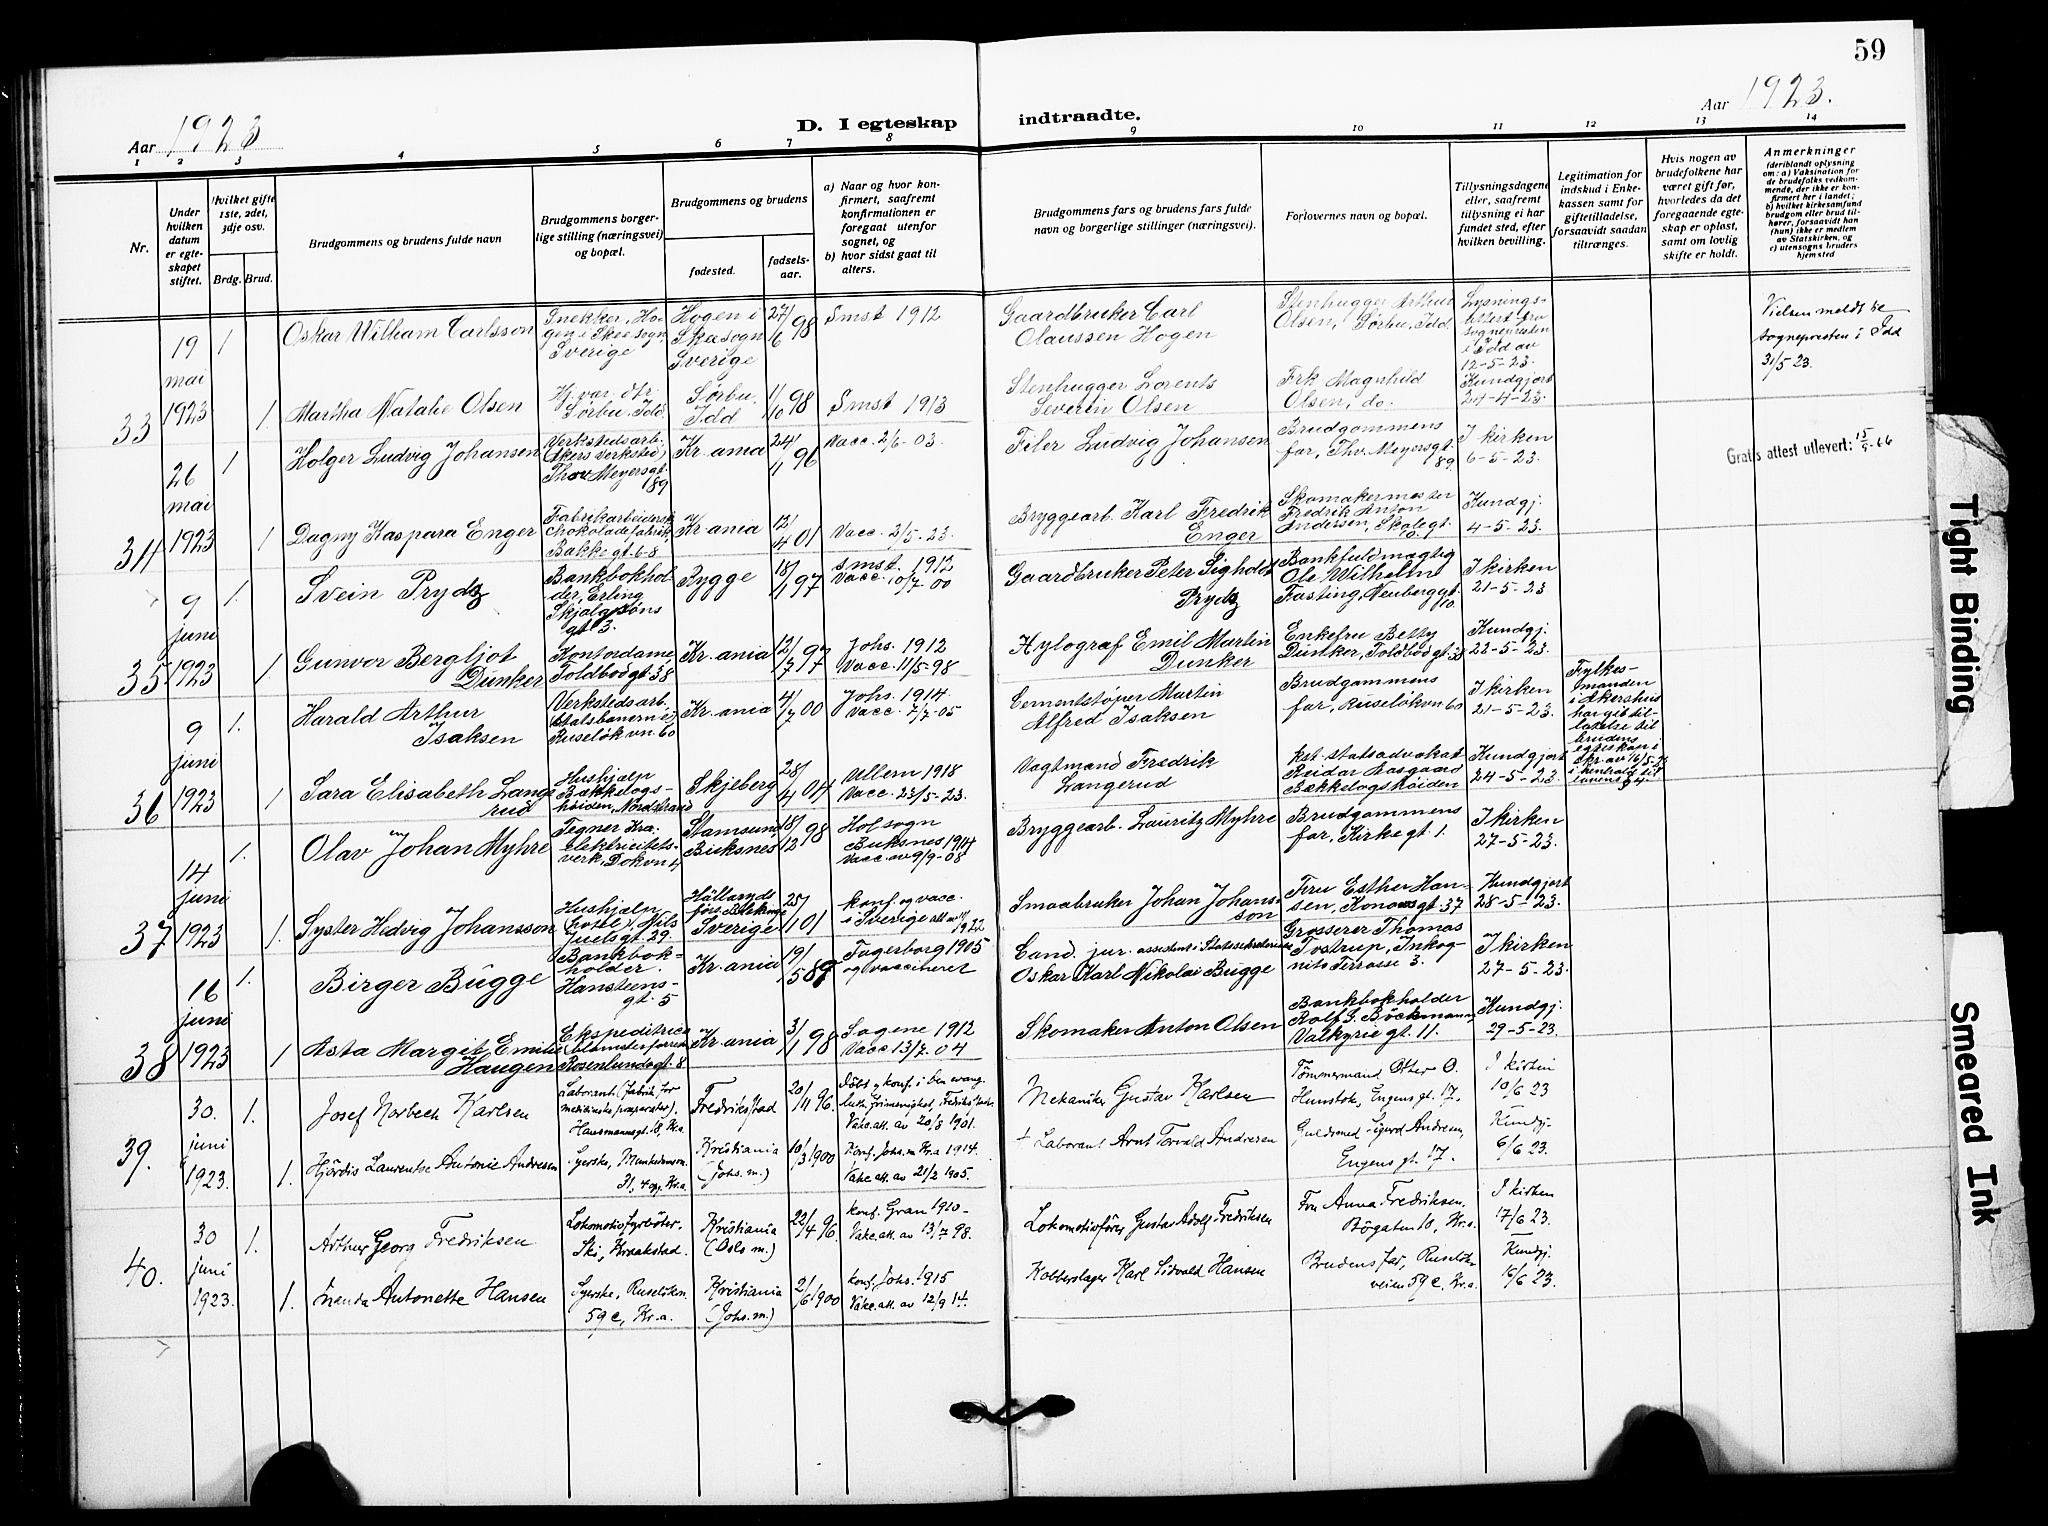 59
Aar 1923
D. I egteskap indtraadte.
Aar 1923.
1 2 3 4 5 6 7 8 9 10 11 12 13 14
Nr.
Under hvilken datum er egteskapet stiftet.
Hvilket gifte 1ste, 2det, 3dje osv.
Brdg. Brud.
Brudgommens og brudens fulde navn
Brudgommens borgerlige stilling (næringsvei) og bopæl.
Brudgommens og brudens
fødested.
fødselsaar.
a) Naar og hvor konfirmert, saafremt konfirmationen er foregaat utenfor sognet, og
b) hvor sidst gaat til alters.
Brudgommens fars og brudens fars fulde navn og borgerlige stillinger (næringsvei).
Forlovernes navn og bopæl.
Tillysningsdagene eller, saafremt tillysning ei har fundet sted, efter hvilken bevilling.
Legitimation for indskud i Enkekassen samt for giftetilladelse, forsaavidt saadan tiltrænges.
Hvis nogen av brudefolkene har været gift før, hvorledes da det foregaaende egteskap er opløst, samt om lovlig skifte er holdt.
Anmerkninger
(deriblandt oplysning om: a) Vaksination for de brudefolks vedkommende, der ikke er konfirmert her i landet; b) hvilket kirkesamfund brudgom eller brud tilhører, forsaavidt han (hun) ikke er medlem av Statskirken, og c) utensogns bruders hjemsted
33
19 mai 1923
1
Oskar Wilham Carlsson
Snekker, Hogen i Skee sogn Sverige
Hogen i Skee sogn Sverige
27/6 98
Smst 1912
Gaardbruker Carl Olaussen Hogen
Stenhugger Arthur Olsen, Sørbu, Idd
Lysningsattest fra sognepresten i Idd av 12-5-23.
Vielsen meldt til sognepresten i Idd 31/5 23.
1.
Martha Natalie Olsen
Hj.vær. dtr. Sørbu, Idd
Sørbu, Idd
11/10 98
Smst 1913
Stenhugger Lorents Severin Olsen
Frk Magnhild Olsen, do.
Kundgjort 24-4-23.
34
26 mai 1923
1
Holger Ludvig Johansen
Verkstedsarb. (Akers Verksted) Thor. Meyersgt. 89
Kr.ania
24/1 96
Vacc. 2/6-03.
Filer Ludvig Johansen
Brudgommens far, Thv. Meyersgt. 89.
I kirken 6-5-23.
Gratis attest utlevert: 15/9-66
1
Dagny Kaspara Enger
Fabrikarbeidersk. Chokoladefabrik, Bakkegt. 6-8
Kr.ania
12/4 01
Vacc. 2/5-23.
Bryggearb. Karl Fredrik Enger
Skomakermester Fredrik Anton Andersen, Skolegt. 10.
Kundgj. 4-5-23.
35
9 juni 1923
1.
Svein Prydz
Bankbokholder, Erling Skjalgssøns gt 3.
Rygge
18/1 97
Smst. 1912 Vacc. 10/7 00
Gaardbruker Peter Sigholdt Prydz
Bankfuldmægtig Ole Wilhelm Fasting, Neuberggt. 10.
I kirken 21-5-23
1.
Gunvor Bergljot Dunker
Kontordame, Toldbodgt. 38
Kr.ania
12/7 97
Johs. 1912 Vacc. 11/5-98
Xylograf Emil Martin Dunker
Enkefru Betty Dunker, Toldbodgt. 38
Kundgj. 22-5-23.
36
9 juni 1923
1.
Harald Arthur Isaksen
Verkstedsarb. (Statsbanerne) Ruseløkvn. 60
Kr.ania
4/7 00
Johs. 1914. Vacc. 7/7-05
Cementstøper Martin Alfred Isaksen
Brudgommens far, Ruseløkvn 60
I kirken 21-5-23.
Fylkesmanden i Akershus har git tilladelse til brudens egteskap i skr. av 16/5-23
1
Sara Elisabeth Langerud
Hushjælp Bækkelagshøiden, Nordstrand
Skjeberg
28/4 04
Ullern 1918 Vacc. 23/5-23.
Vagtmand Fredrik Langerud
Kst. statsadvokat Reidar Aasgaard Bækkelagshøiden
Kundgjort 24-5-23.
37
14 juni 1923
1.
Olav Johan Myhre
Tegner Kra. elektricitetsverk, Dokvn 4
Stamsund, Buksnes
18/12 98
Hol sogn Buksnes 1914 Vacc. av 9/9-08
Bryggearb. Lauritz Myhre
Brudgommens far, Kirkegt. 1.
I kirken 27-5-23.
1.
Syster Hedvig Johansson
Hushjælp (hotel), Nils Juelsgt. 29.
Hällaryds förs. Blekinge Sverige
25/1 01
konf. og vacc. i Sverige
Smaabruker Johan Johansson
Fru Esther Hansen, Konowsgt 37
Kundgjort 28-5-23.
38
16 juni 1923
1.
Birger Bugge
Bankbokholder. Hansteensgt. 5
Kr.ania
19/5 89
Fagerborg 1905 og vaccineret
Cand. jur. assistent i Statssekretariatet Oskar Karl Nikolai Bugge
Grosserer Thomas Tostrup, Inkognito Terrasse 3.
I kirken 27-5-23.
1
Asta Margit Emilie Haugen
Ekspeditrice (blomsterforretn.) Rosenlundsgt. 8
Kr.ania
3/1 98
Sagene 1912 Vacc 13/7.04
Skomaker Anton Olsen
Bankbokholder Rolf S. Böckmann, Valkyriegt. 11.
Kundgj. 29-5-23.
39.
30. juni 1923.
1.
Josef Norbech Karlsen
Laborant (fabrik for medicinske præparater), Hausmannsgt. 18, Kr.a
Fredrikstad
20/11 96.
Döbt og konf. i den evang. luth. frimenighet, Fredrikstad. Vakc.att. av 20/8 1901.
Mekaniker Gustav Karlsen
Tömmermand Otter O. Hunstok, Eugensgt. 17.
I kirken 10/6 23
1.
Hjördis Laurentse Antonie Andresen
Syerske, Munkedamsvn. 31, 4 opg. Kr.a
Kristiania (Johs. m.)
10/3 1900
Konf. Johs. m. Kr.a 1914. Vakc att. av 21/2 1905.
+ Laborant Arnt Torvald Andresen
Guldsmed Sigurd Andresen, Eugensgt. 17.
Kundgj. 6/6 23.
40.
30 juni 1923.
1.
Arthur Georg Fredriksen
Lokomotivfyrböter, Ski, Kraakstad.
Kristiania (Oslo m.)
22/4 96.
konf. Gran 1910- Vakc.att. av 13/7 98.
Lokomotivförer Gustav Adolf Fredriksen
Fru Anna Fredriksen, Bögaten 10, Kr.a.
I kirken 17/6 23.
1.
Nanda Antonette Hansen
Syerske, Ruselökvn. 59 c, Kr.a.
Kristiania (Johs. m.)
2/6 1900
konf. Johs. 1915 Vakc.att. av 12/9 14.
Kobberslager Karl Sidvald Hansen
Brudens far, Ruselökveien 59 c, Kr.a.
Kundgj. 16/6 23.
Tight Binding
Smeared Ink